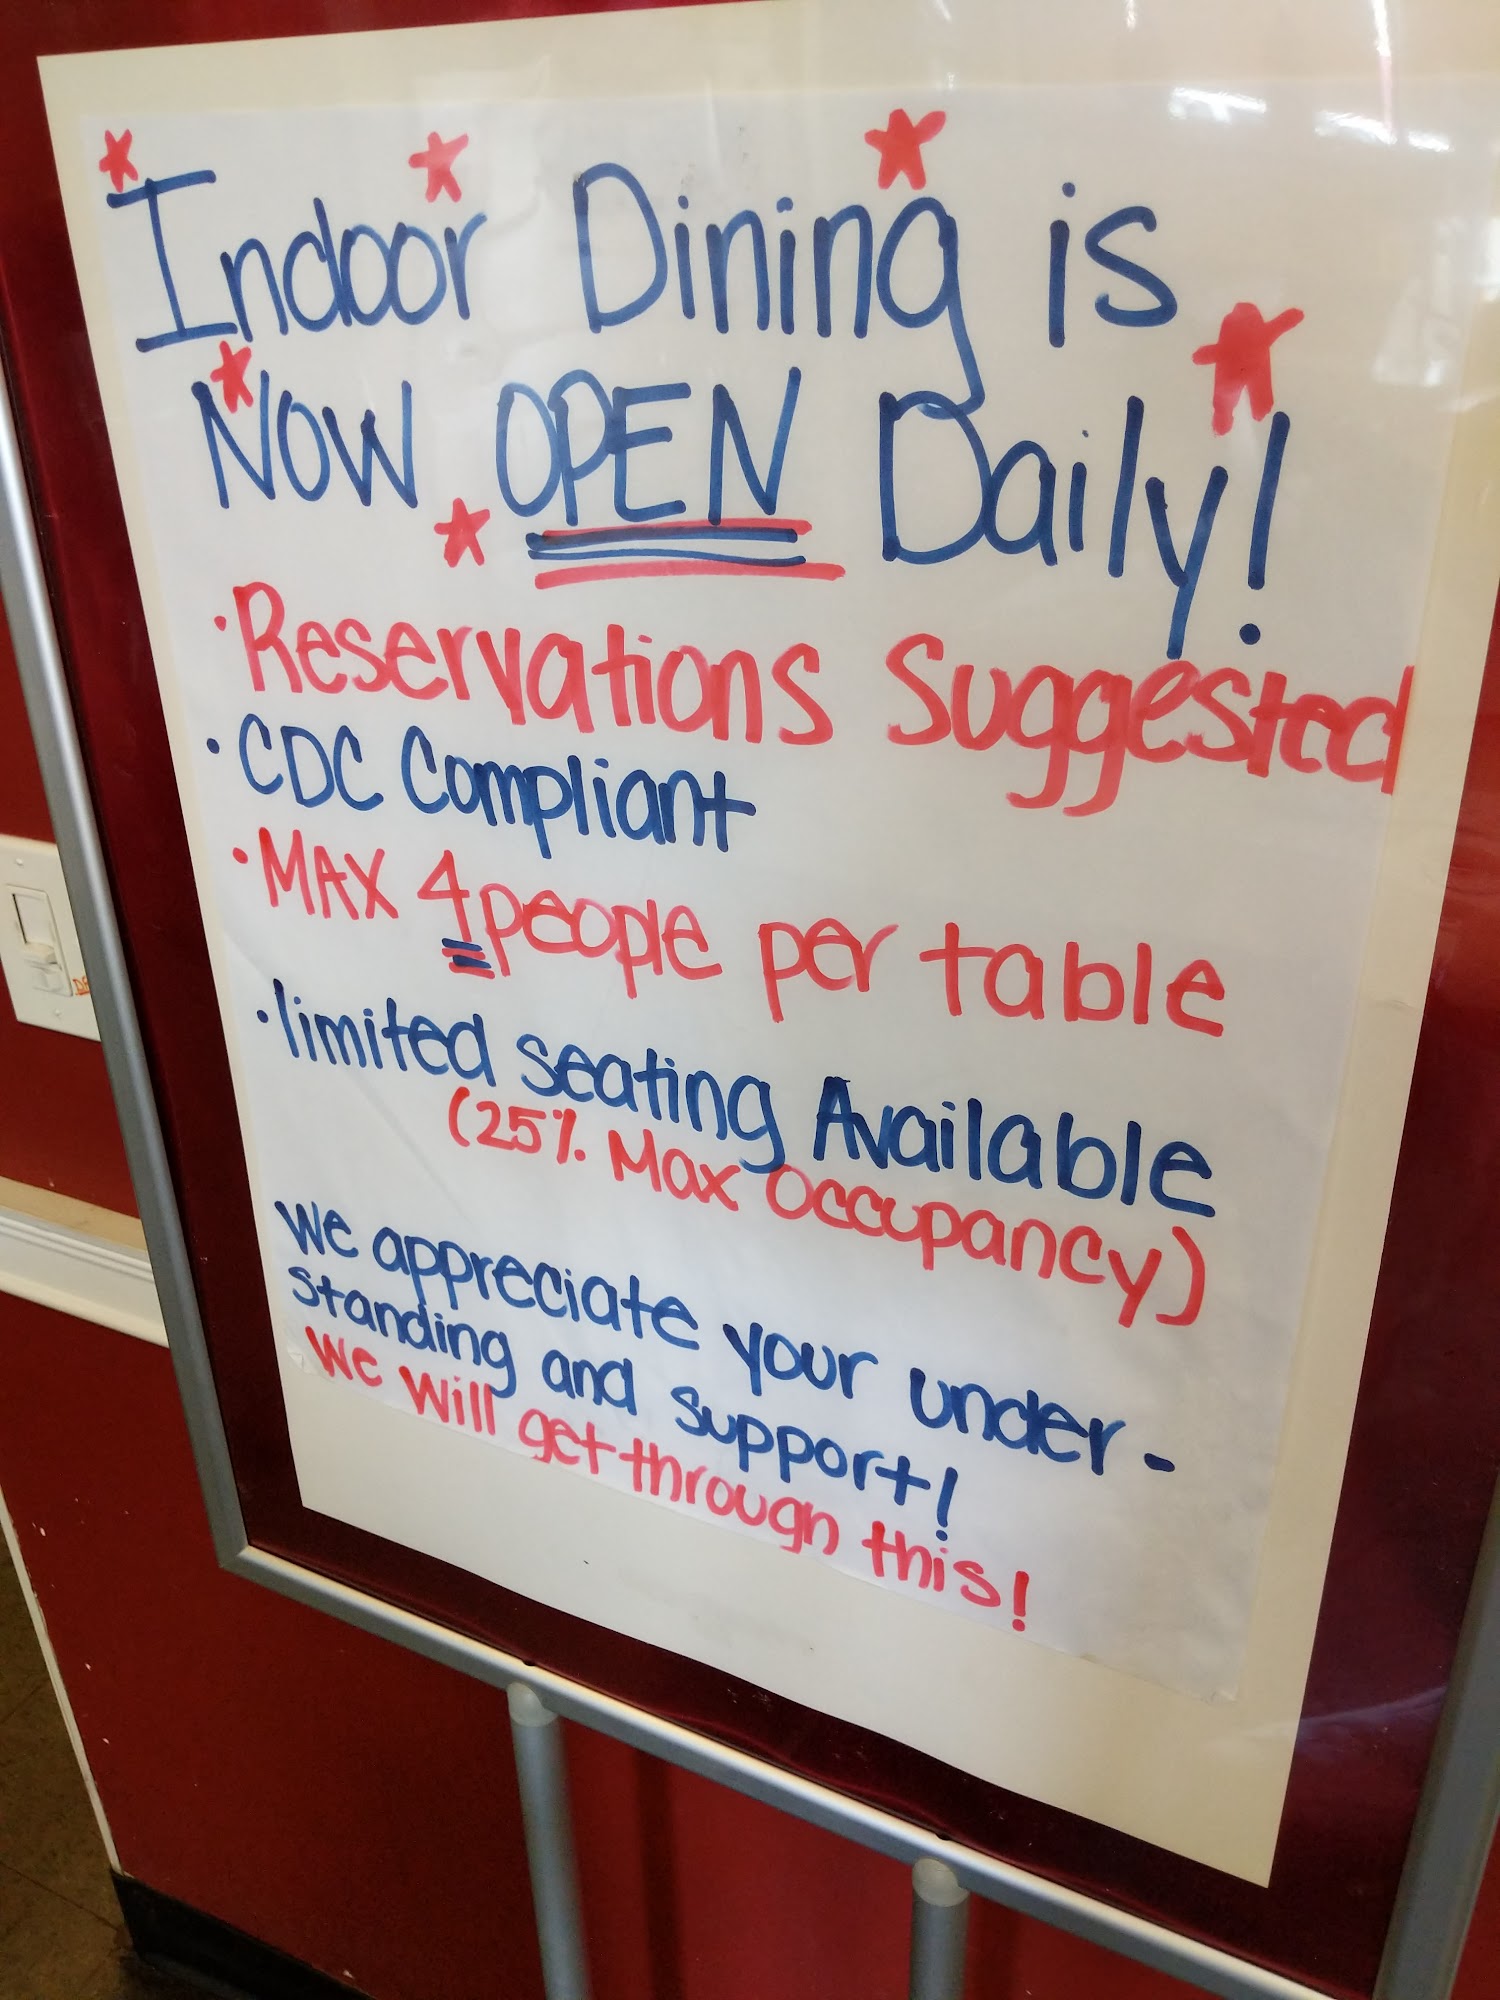 Indoor Dining is
NOW OPEN Daily!
• Reservations Suggested
• CDC Compliant
• MAX 4 people per table
• limited seating Available
(25% Max Occupancy)
We appreciate your under-
standing and support!
We will get through this!